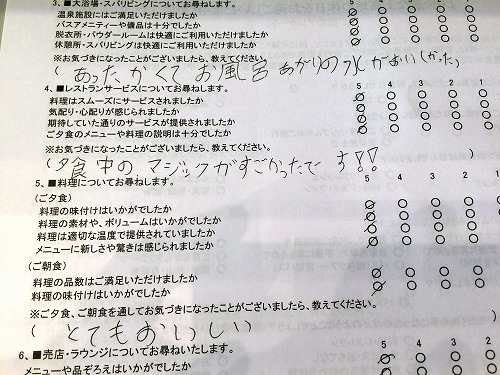 3、■大浴場・スパリビングについてお尋ねします。
温泉施設にはご満足いただけましたか
バスアメニティーや備品は十分でしたか
脱衣所・パウダールームは快適にご利用いただけましたか
休憩所・スパリビングは快適にご利用いただけましたか
※お気づきになったことがございましたら、教えてください。
(あったかくてお風呂あがりの水がおいしかった)
4、■レストランサービスについてお尋ねします。 5 4 3 2 1
料理はスムーズにサービスされましたか
気配り・心配りが感じられましたか
期待していた通りのサービスが提供されましたか
ご夕食のメニューや料理の説明は十分でしたか
※お気づきになったことがございましたら、教えてください。
(夕食中のマジックがすごかったです!!)
5、■料理についてお尋ねします。 5 4 3 2 1
(ご夕食)
料理の味付けはいかがでしたか
料理の素材や、ボリュームはいかがでしたか
料理は適切な温度で提供されていましたか
メニューに新しさや驚きは感じられましたか
(ご朝食)
料理の品数はご満足いただけましたか
料理の味付けはいかがでしたか
※ご夕食、ご朝食を通してお気づきになったことがございましたら、教えてください。
(とてもおいしい)
6、■売店・ラウンジについてお尋ねいたします。 5 4 3 2
メニューや品ぞろえはいかがでしたか